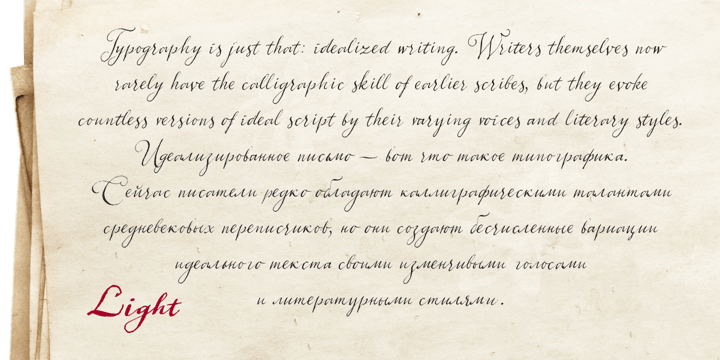 Typography is just that: idealized writing. Writers themselves now
rarely have the calligraphic skill of earlier scribes, but they evoke
countless versions of ideal script by their varying voices and literary styles.
Идеализированное письмо — вот что такое типографика.
Сейчас писатели редко обладают каллиграфическими талантами
средневековых переписчиков, но они создают бесчисленные вариации
идеального текста своими изменчивыми голосами
и литературными стилями.
Light